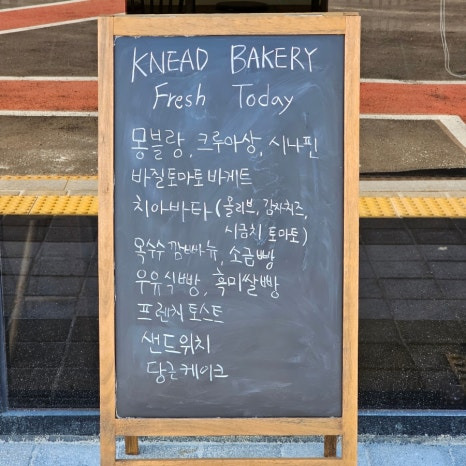 KNEAD BAKERY
Fresh Today
몽블랑, 크루아상, 시나핀
바질토마토 바게트
치아바타 (올리브, 감자치즈,
시금치 토마토)
옥수수 깜빠뉴, 소금빵
우유식빵, 흑미쌀빵
프렌치토스트
샌드위치
당근케이크